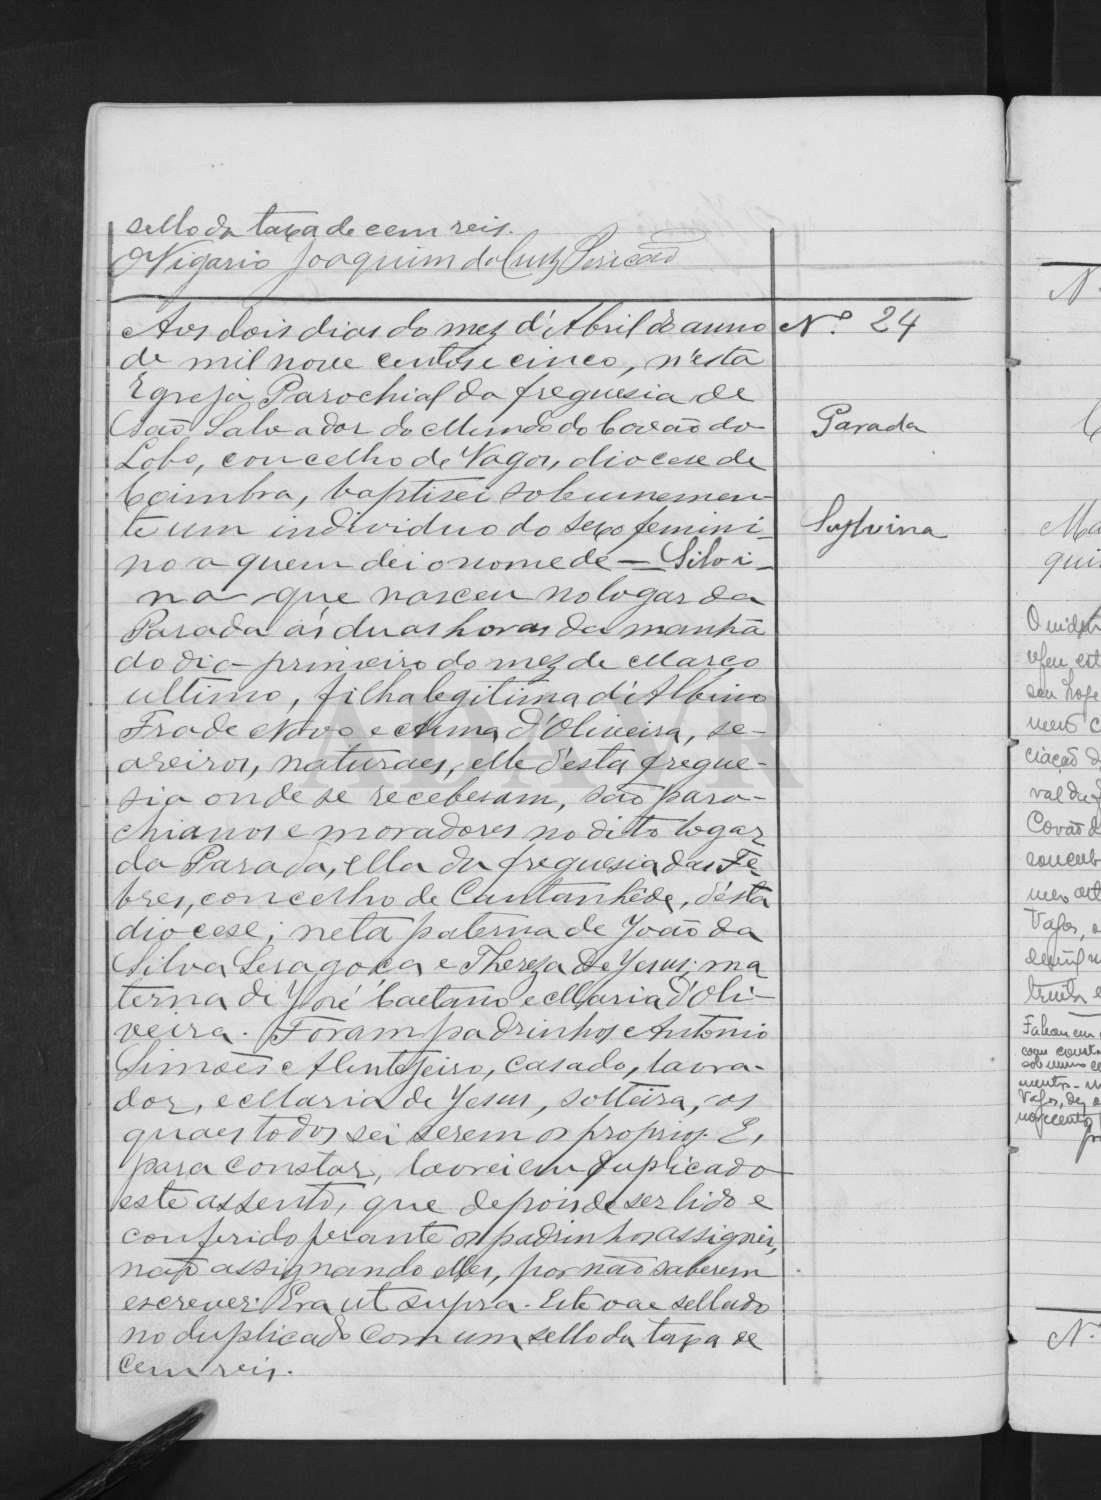 sello da taxa de cem reis.
O Vigario Joaquim da Cruz Pericão
Aos dois dias do mez d'Abril do anno
Nº 24
de mil nove centos e cinco, n'esta
Egreja Parochial da freguesia de
São Salvador do Mundo do Covão do
Parada
Lobo, concelho de Vagos, diocese de
Coimbra, baptisei solemnemen-
te um individuo do sexo femini-
Sylvina
no a quem dei o nome de — Silvi-
na que nasceu no logar da
Parada ás duas horas da manhã
do dia primeiro do mez de Março
ultimo, filha legitima d'Albino
Frade Novo e Anna d'Oliveira, se-
areiros, naturaes, elle d'esta fregue-
sia onde se receberam, são paro-
chianos e moradores no dito logar
da Parada, ella da freguesia das Fe-
bres, concelho de Cantanhede, d'esta
diocese; neta paterna de João da
Silva Seragoça e Thereza de Jesus; ma
terna de José Caetano e Maria d'Oli-
veira. Foram padrinhos Antonio
Simões Alentejeiro, casado, lavra-
dor, e Maria de Jesus, solteira, os
quaes todos sei serem os proprios. E,
para constar, lavrei em duplicado
este assento, que depois de ser lido e
conferido perante os padrinhos assignei,
não assignando elles, por não saberem
escrever. Era ut supra. Este vae sellado
no duplicado com um sello da taxa de
cem reis.
ADAVR
Nº